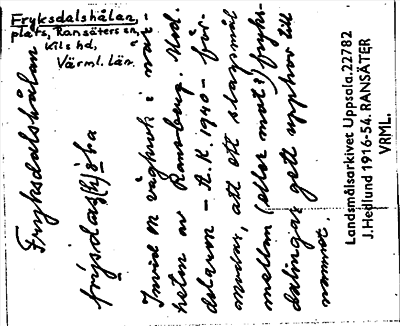 Fryksdalshålan,
plats, Ransäters sn,
Kils hd,
Värml. län.
Fryksdalshålan
Invid en vägkrok i när-
heten av Ransberg. Med-
delaren - A.K. 1940 - för-
modar, att ett slagsmål
mellan (eller mot?) fryks-
dalingar gett upphov till
namnet.
Landsmålsarkivet Uppsala. 22782
J. Hedlund 1916-54. RANSÄTER
VRML.